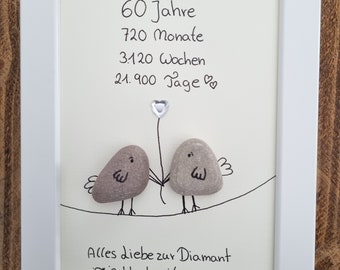 60 Jahre
720 Monate
3.120 Wochen
21.900 Tage
Alles Liebe zur Diamant